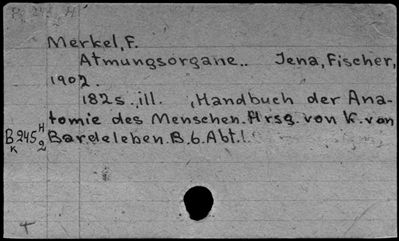 Merkel, F.
Atmungsorgane.. Jena, Fischer,
1902.
182s., ill. , Handbuch der Ana-
tomie des Menschen. Hrsg. von K. von
B 245 H Bardeleben. B. 6. Abt. 1.
K 2